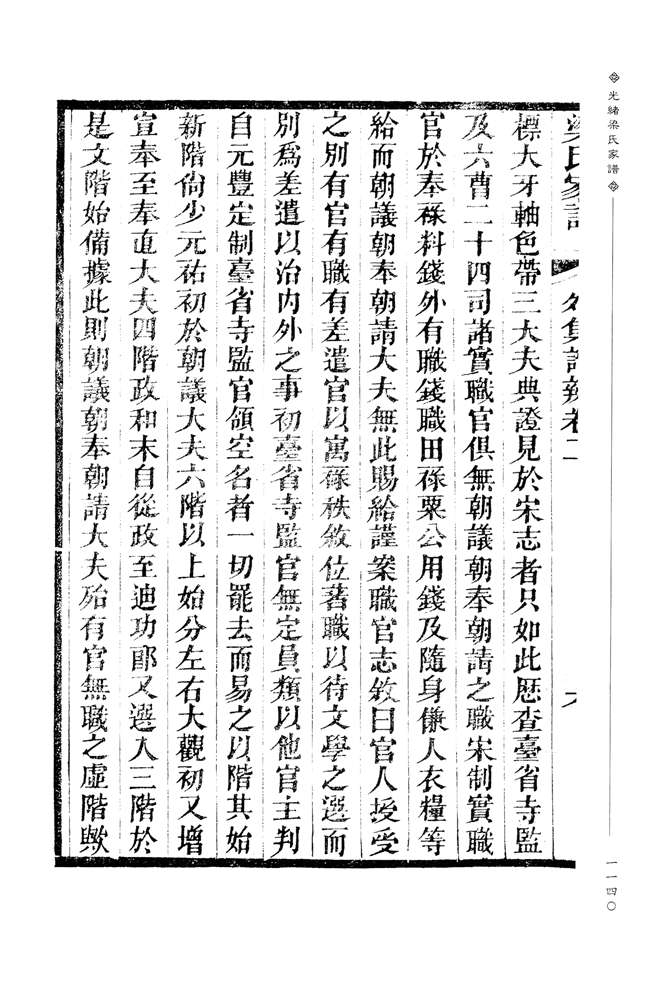 光緒梁氏家譜
一一四〇
梁氏家譜 卷二
標大牙軸色帶三大夫典證見於宋志者只如此歷查臺省寺監
及六曹二十四司諸實職官俱無朝議朝奉朝請之職宋制實職
官於奉祿料錢外有職錢職田祿粟公用錢及隨身傔人衣糧等
給而朝議朝奉朝請大夫無此賜給謹案職官志敘曰官人授受
之別有官有職有差遣官以寓祿秩敘位著職以待文學之選而
別爲差遣以治內外之事初臺省寺監官無定員類以他官主判
自元豐定制臺省寺監官領空名者一切罷去而易之以階其始
新階尙少元祐初於朝議大夫六階以上始分左右大觀初又增
宣奉至奉直大夫四階政和末自從政至迪功郎又選人三階於
是文階始備據此則朝議朝奉朝請大夫殆有官無職之虛階歟